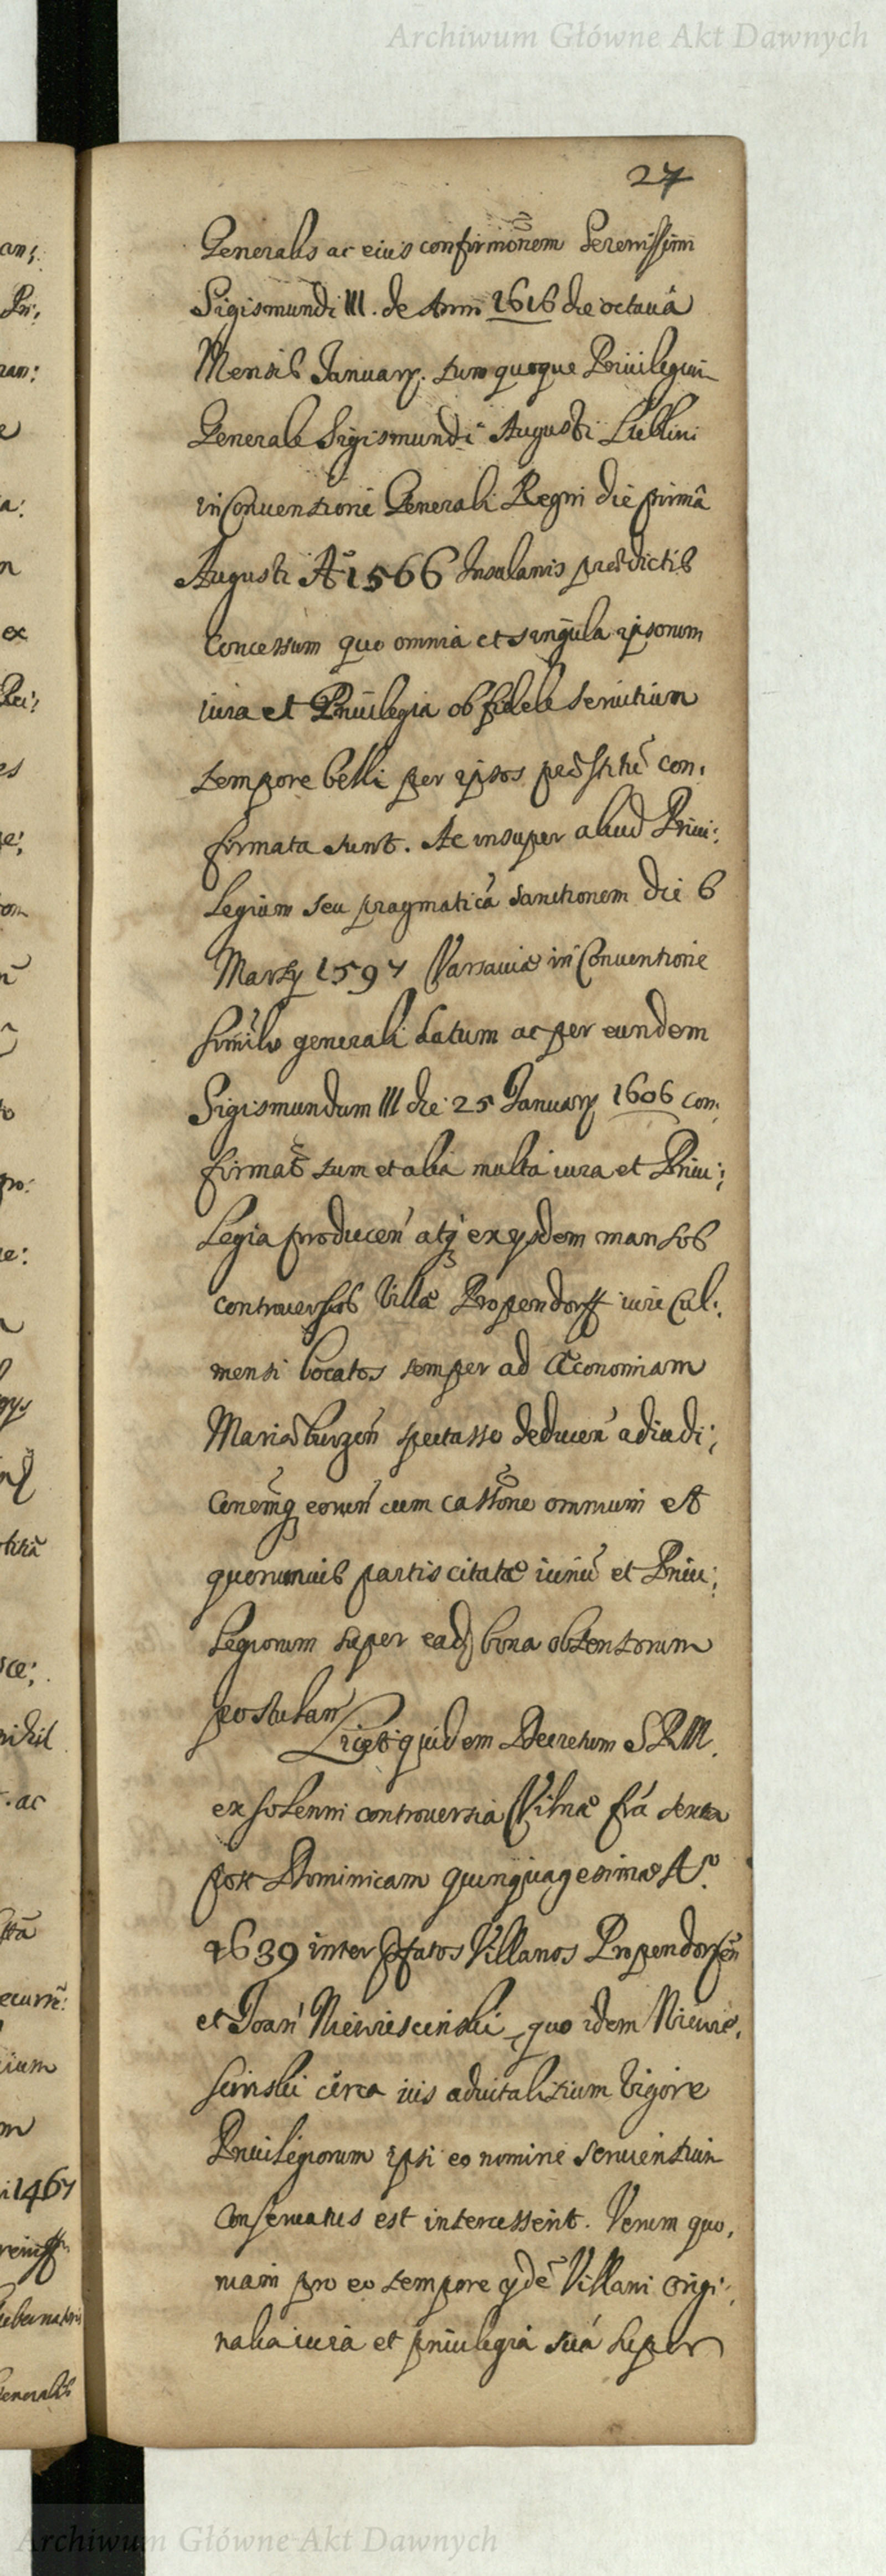 Archiwum Główne Akt Dawnych
27
Generalis ac eius confirmõnem Serenissimi
Sigismundi III. de Anno 1616 die octauâ
Mensis January. tum quoque Priuilegium
Generale Sigismundi Augusti Lublini
in Conuentione Generali Regni die primâ
Augusti Aº 1566 Insulanis prædictis
Concessum quo omnia et singula ipsorum
iura et Priuilegia ob fidele seruitium
tempore belli per ipsos præstitũ con:
firmata sunt. Ac insuper aliud Priui:
legium seu pragmaticã sanctionem die 6
Marty 1597 Varsauiæ in Conuentione
simili generali datum ac per eundem
Sigismundum III die 25 January 1606 con:
firmat̃ tum et alia multa iura et Priui:
legia producen̄ atq̧ ex ysdem mansos
controuersos Villæ Propendorff iure Cul:
mensi locatos semper ad Œconomiam
Mariæburgen̄ spectasse deducen̄ adiudi:
canem̃q eorun̄ cum cassõne omnium et
quorumuis partis citatæ iuriũ et Priui:
legiorum super ead bona obtentorum
postulan̄
Licet quidem Decretum S R M.
ex solenni controuersia Vilnæ fr̃a sexta
post Dominicam quinquagesimæ Aº.
1639 inter p̃fatos Villanos Propendorfen̄
et Joan̄ Niewiescinski, quo idem Niewie:
scinski circa ius aduitalitium vigore
Priuilegiorum ipsi eo nomine seruientium
Conseruatus est intercesserit. Verum quo:
niam pro eo tempore ydẽ Villani origi:
nalia iura et priuilegia sua super
an;
ex
es
ac
1467
Generalis
Archiwum Główne Akt Dawnych